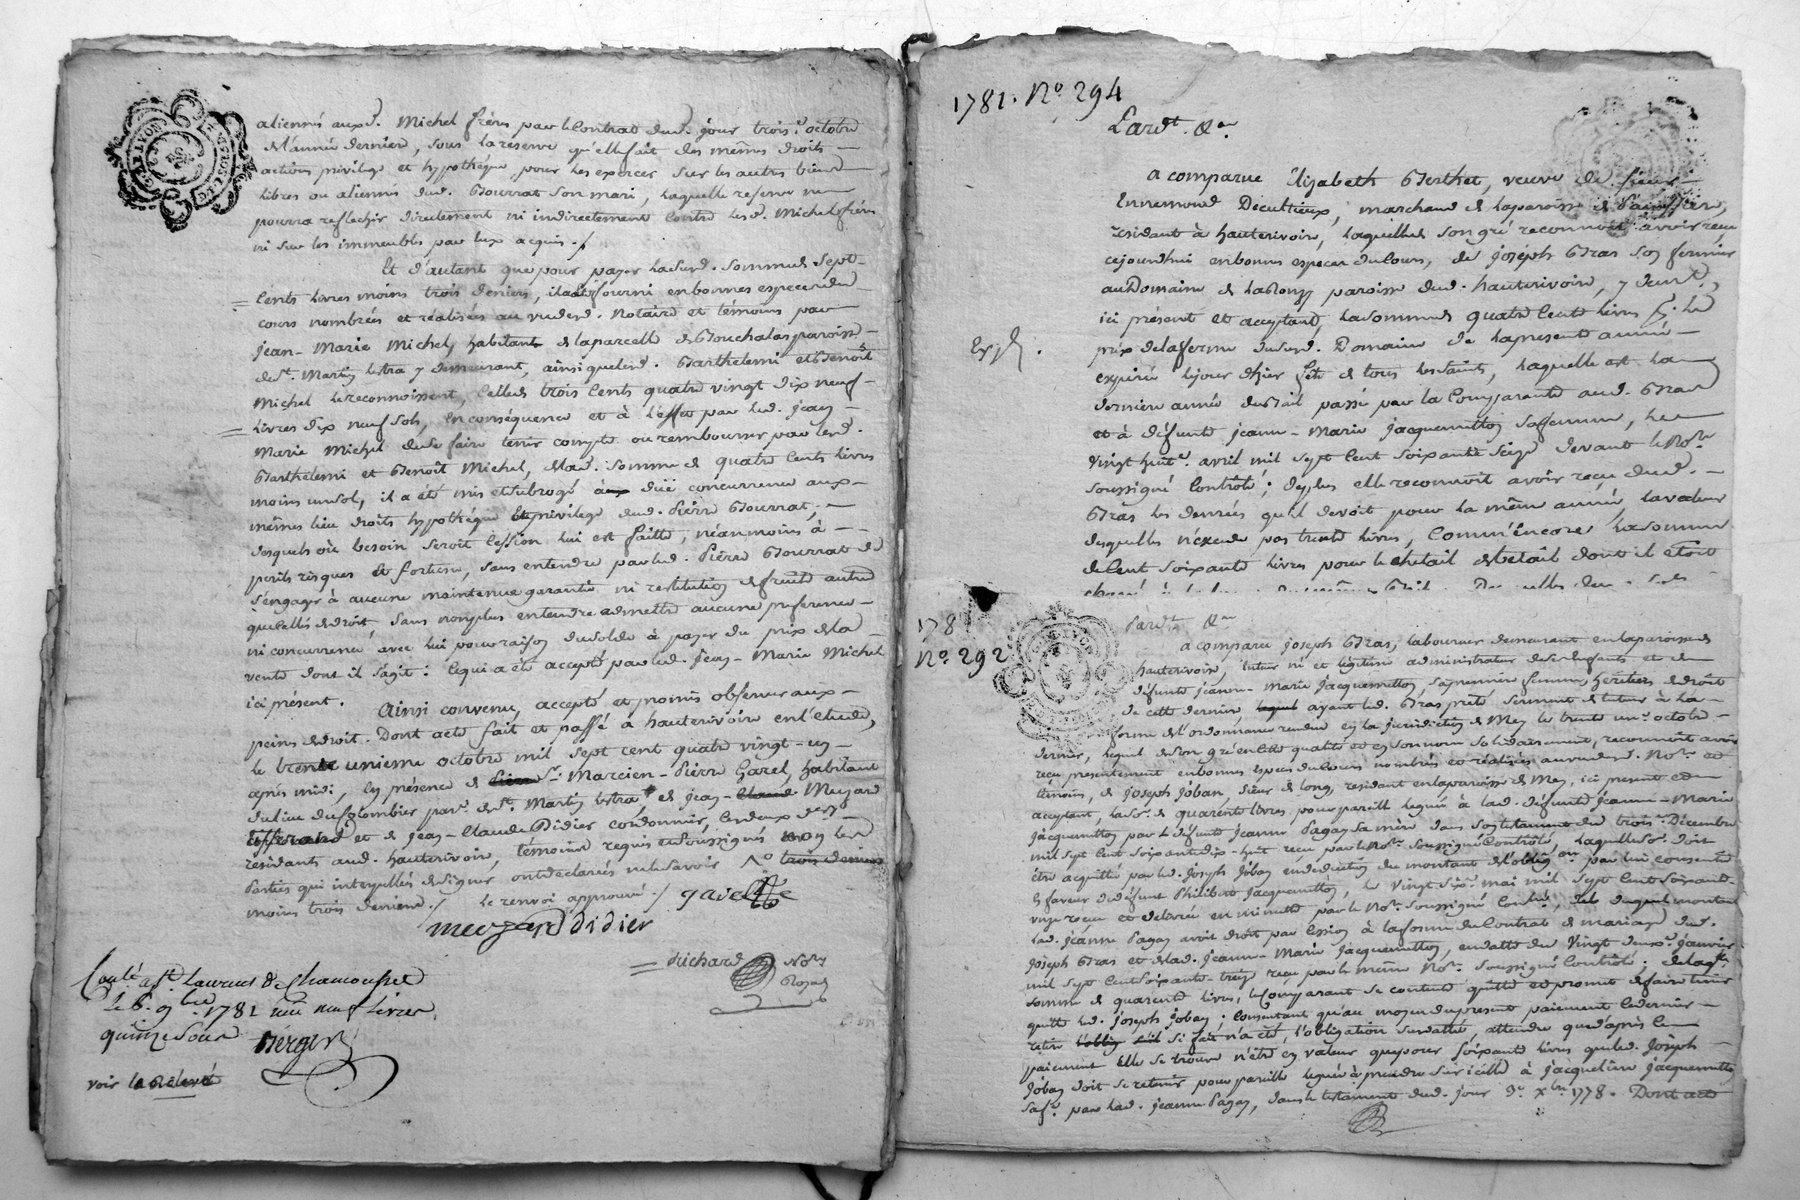 aliennés auxd. Michel frères par le Contrat dud. jour trois.e octobre
de l'année dernier, sous la réserve qu'elle fait des mêmes droits
actions privilège et hypothéque, pour les exercer sur les autres biens
libres ou aliennés dud. Bourrat son mari, laquelle reserve ne
pourra reflechir directement ni indirectement contre lesd. Michel frères
ni sur les immeubles par eux acquis ./
Et d'autant que pour payer lasusd. somme de sept
cents livres moins trois deniers, il a été fourni en bonnes especes du
cours nombrées et réalisées au vu dud. Notaire et témoins par
jean-Marie Michel, habitant de la parcelle de Bouchalas paroisse
de St. Martin lestra y demeurant, ainsi que lesd. Barthelemi et Benoît
Michel le reconnoissent, celle de trois Cents quatre vingt dix neuf
livres dix neuf sols, en conséquence et à l'effet par led. jean
Marie Michel de se faire tenir compte ou rembourser par lesd.
Barthélemi et Benoît Michel, de lad. somme de quatre cents livres
moins un sol, il a été mis et subrogé à due concurrence aux
mêmes lieu droits hypothéque et privilege dud. Pierre Bourrat,
desquels où besoin seroit Cession lui est faitte, néanmoins à
perils risques et fortune, sans entendre par led. Pierre Bourrat de
s'engager à aucune maintenue garantie ni restitution de fruits autre
que celle de droit, sans non plus entendre admettre aucune preference
ni concurrence avec lui pour raison du solde à payer du prix de la
vente dont il s'agit : ce qui a été accepté par led. jean-Marie Michel
ici présent.
Ainsi convenu, accepté et promis observer aux
peines de droit. Dont acte fait et passé à hauterivoire en l'etude,
le trente unieme octobre mil sept cent quatre vingt-un
après midi, en présence de sr. Marcien-Pierre Garel, habitant
du lieu du Colombier par. de St. Martin lestra et de jean Meuzard
et de jean-Claude Didier cordonnier, les deux
résidants aud. hauterivoire, témoins requis et soussignés non les
Parties qui interpellées de signer ont déclarées ne le savoir
moins trois deniers / le renvoi approuvé / garel
meuzard Didier
Richard Nore
Royal
Conlé. a St. Laurent de Chamousset
Le 6. 9bre 1781 reçu neuf Livres
quinze sous Berger
voir le Relevé
1781. No. 294
Pardt. &a.
A comparue Elizabeth Berthet, veuve de sieur
Ennemond Decultieux, marchand de la paroisse de
résidant à hauterivoire, laquelle de son gré reconnoit avoir reçu
cejourdhui en bonnes especes du cours, de joseph Bras son fermier
au Domaine de paroisse dud. hauterivoire, y demt.,
ici présent et acceptant, la somme de quatre cent livres le
prix de la ferme dususd. Domaine de la presente année
expirée le jour d'hier fête de tous les saints, laquelle est la
derniere année du Bail passé par la Comparante aud. Bras
et à défunte jeanne-Marie jacquemetton sa femme, le
Vingt huite. avril mil sept Cent soixante seize devant le Nore
soussigné Contrôlé; de plus elle reconnoit avoir reçu dud.
Bras les denrées qu'il devoit pour la même année, la valeur
desquelles n'excede pas trente livres, comm'encore la somme
de Cent soixante livres pour le chetail de betail dont il étoit
Expé.
178
No. 292
Pardt. &a.
a comparu joseph Bras, laboureur demeurant en la paroisse de
hauterivoire, tuteur né et légitime administrateur de ses enfants et de
défunte jeanne-Marie jacquemetton, sa premiere femme, héritiers de droit
de cette derniere ayant led. Bras prêté serment de tuteur à la
forme de l'ordonnance rendue en la juridiction de Mey le trente un.e octobre
dernier, lequel de son gré en cette qualité et en son nom solidairement, reconnoit avoir
reçu présentement en bonnes especes du cours nombrées et réalisées au vu dud. No.re et
témoins, de joseph joban, sieur de long, residant en la paroisse de Mey, ici présent et
acceptant, la so. de quarente livres pour pareille leguée à lad. défunte jeanne-Marie
jacquemetton par défunte jeanne Pagay sa mère dans son testament du trois.e Décembre
mil sept cent soixante dix-huit reçu par le Nore. soussigné Contrôlé, laquelle so. doit
être acquittée par led. joseph joban en déduction du montant de l'oblig.on par lui consentie
en faveur de défunt Philibert Jacquemetton, le vingt six.e mai mil sept cent soixante
reçu et delivrée en minutte par le Nore. soussigné Contrlé.
lad. jeanne Pagay avoit droit par cession à la forme du Contrat de mariage dud.
joseph Bras et de lad. jeanne-Marie jacquemetton, en datte du Vingt deux.e janvier
mil sept Cent soixante-treize reçu par le même Nore. soussigné Contrôlé; de laqlle
somme de quarente livres, le Comparant se contente quitte et promet de faire tenir
quitte led. joseph joban; consentant qu'au moyen du present paiement ce dernier
retire si fait n'a été, l'obligation susdattée, attendu que d'après le
paiement elle se trouve n'être en valeur que pour soixante livres que led. joseph
joban doit se retenir pour pareille leguée à prendre sur icelle à jacqueline jacquemetton
sa fe. par lad. jeanne Pagay, dans le testament dud. jour 3e Xbre 1778. Dont acte